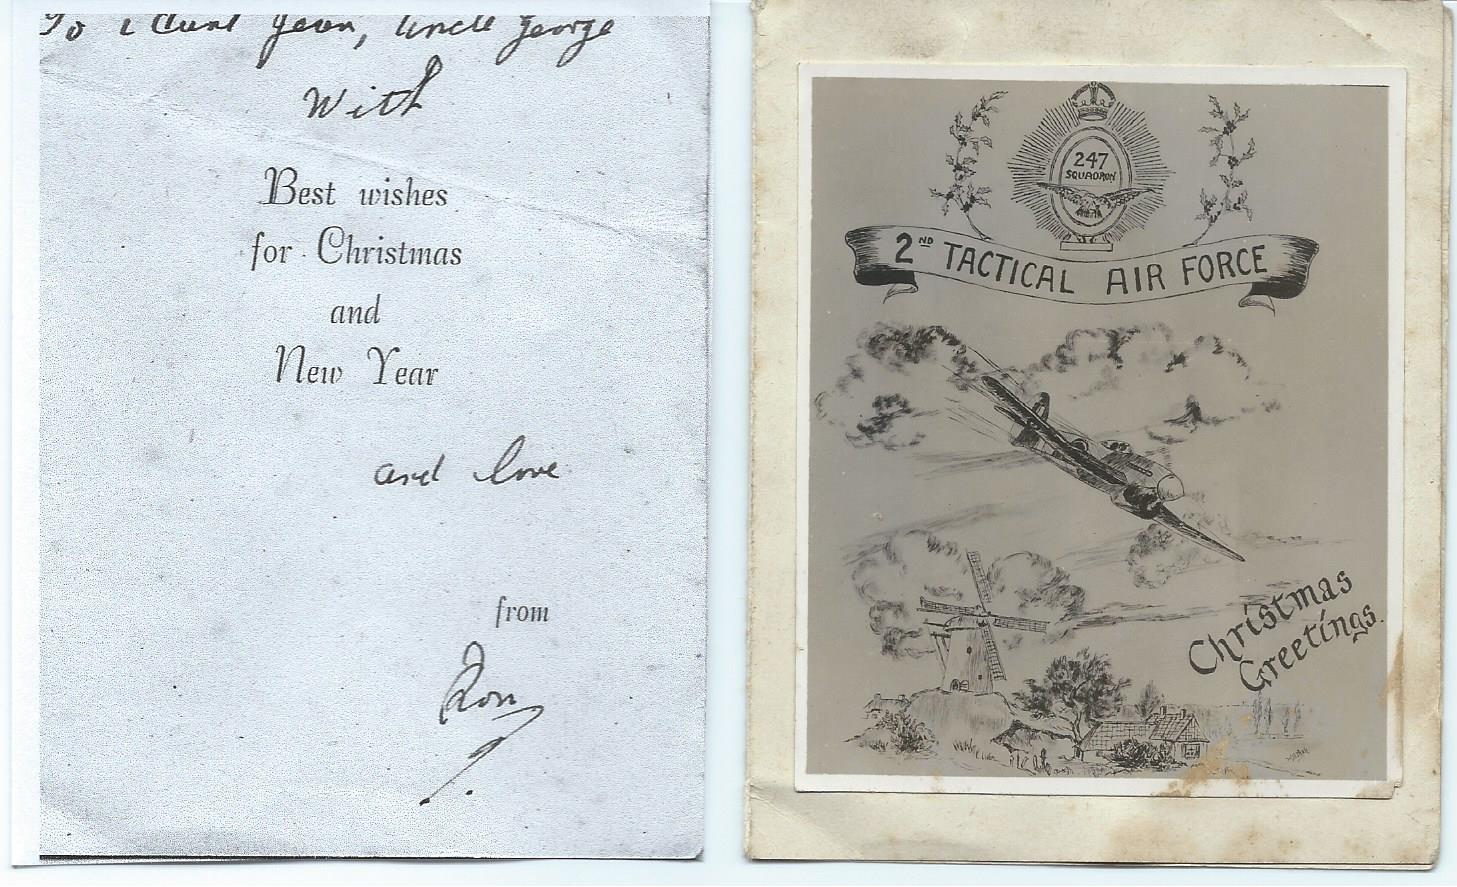 To Aunt Jean, Uncle George
With
Best wishes
for Christmas
and
New Year
and love
from
Ron
247
SQUADRON
2ND TACTICAL AIR FORCE
Christmas
Greetings.